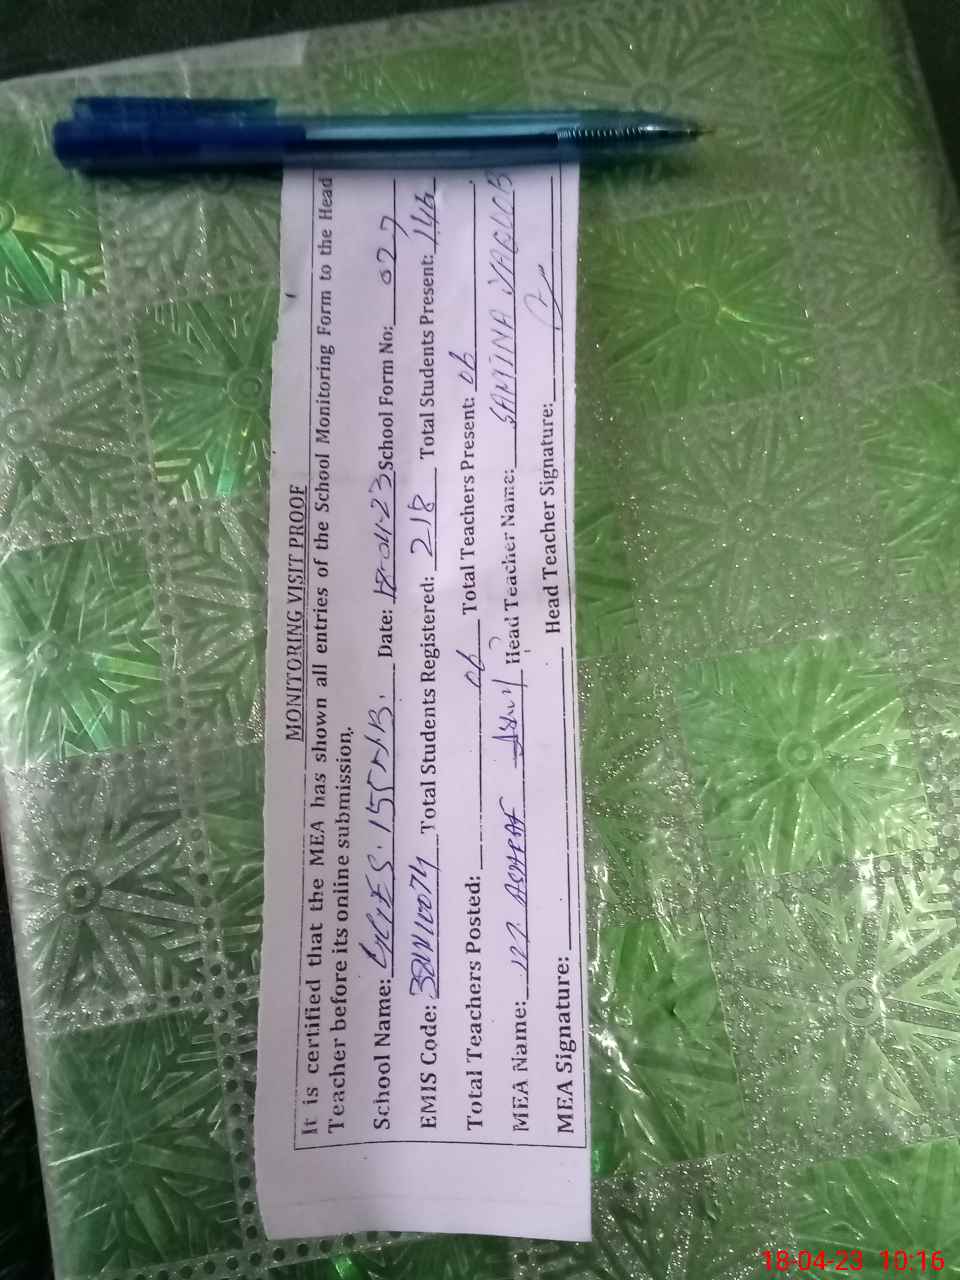 MONITORING VISIT PROOF
It is certified that the MEA has shown all entries of the School Monitoring Form to the Head
Teacher before its online submission.
School Name: Date: 18-04-23 School Form No: 027
EMIS Code: Total Students Registered: 218 Total Students Present: 146
Total Teachers Posted: 06 Total Teachers Present: 06
MEA Name: ASHRAF Head Teacher Name: SAMINA YAQOOB
MEA Signature: Head Teacher Signature:
18-04-23 10:16